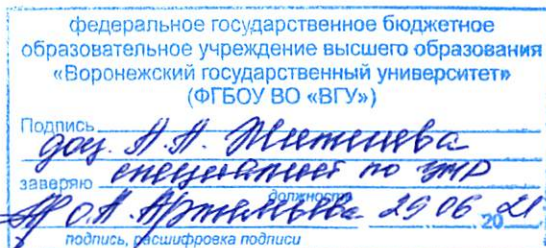 федеральное государственное бюджетное
образовательное учреждение высшего образования
«Воронежский государственный университет»
(ФГБОУ ВО «ВГУ»)
Подпись
доц. А.А.
заверяю специалист по УМР
должность
О.А. 29 06 20 21
подпись, расшифровка подписи